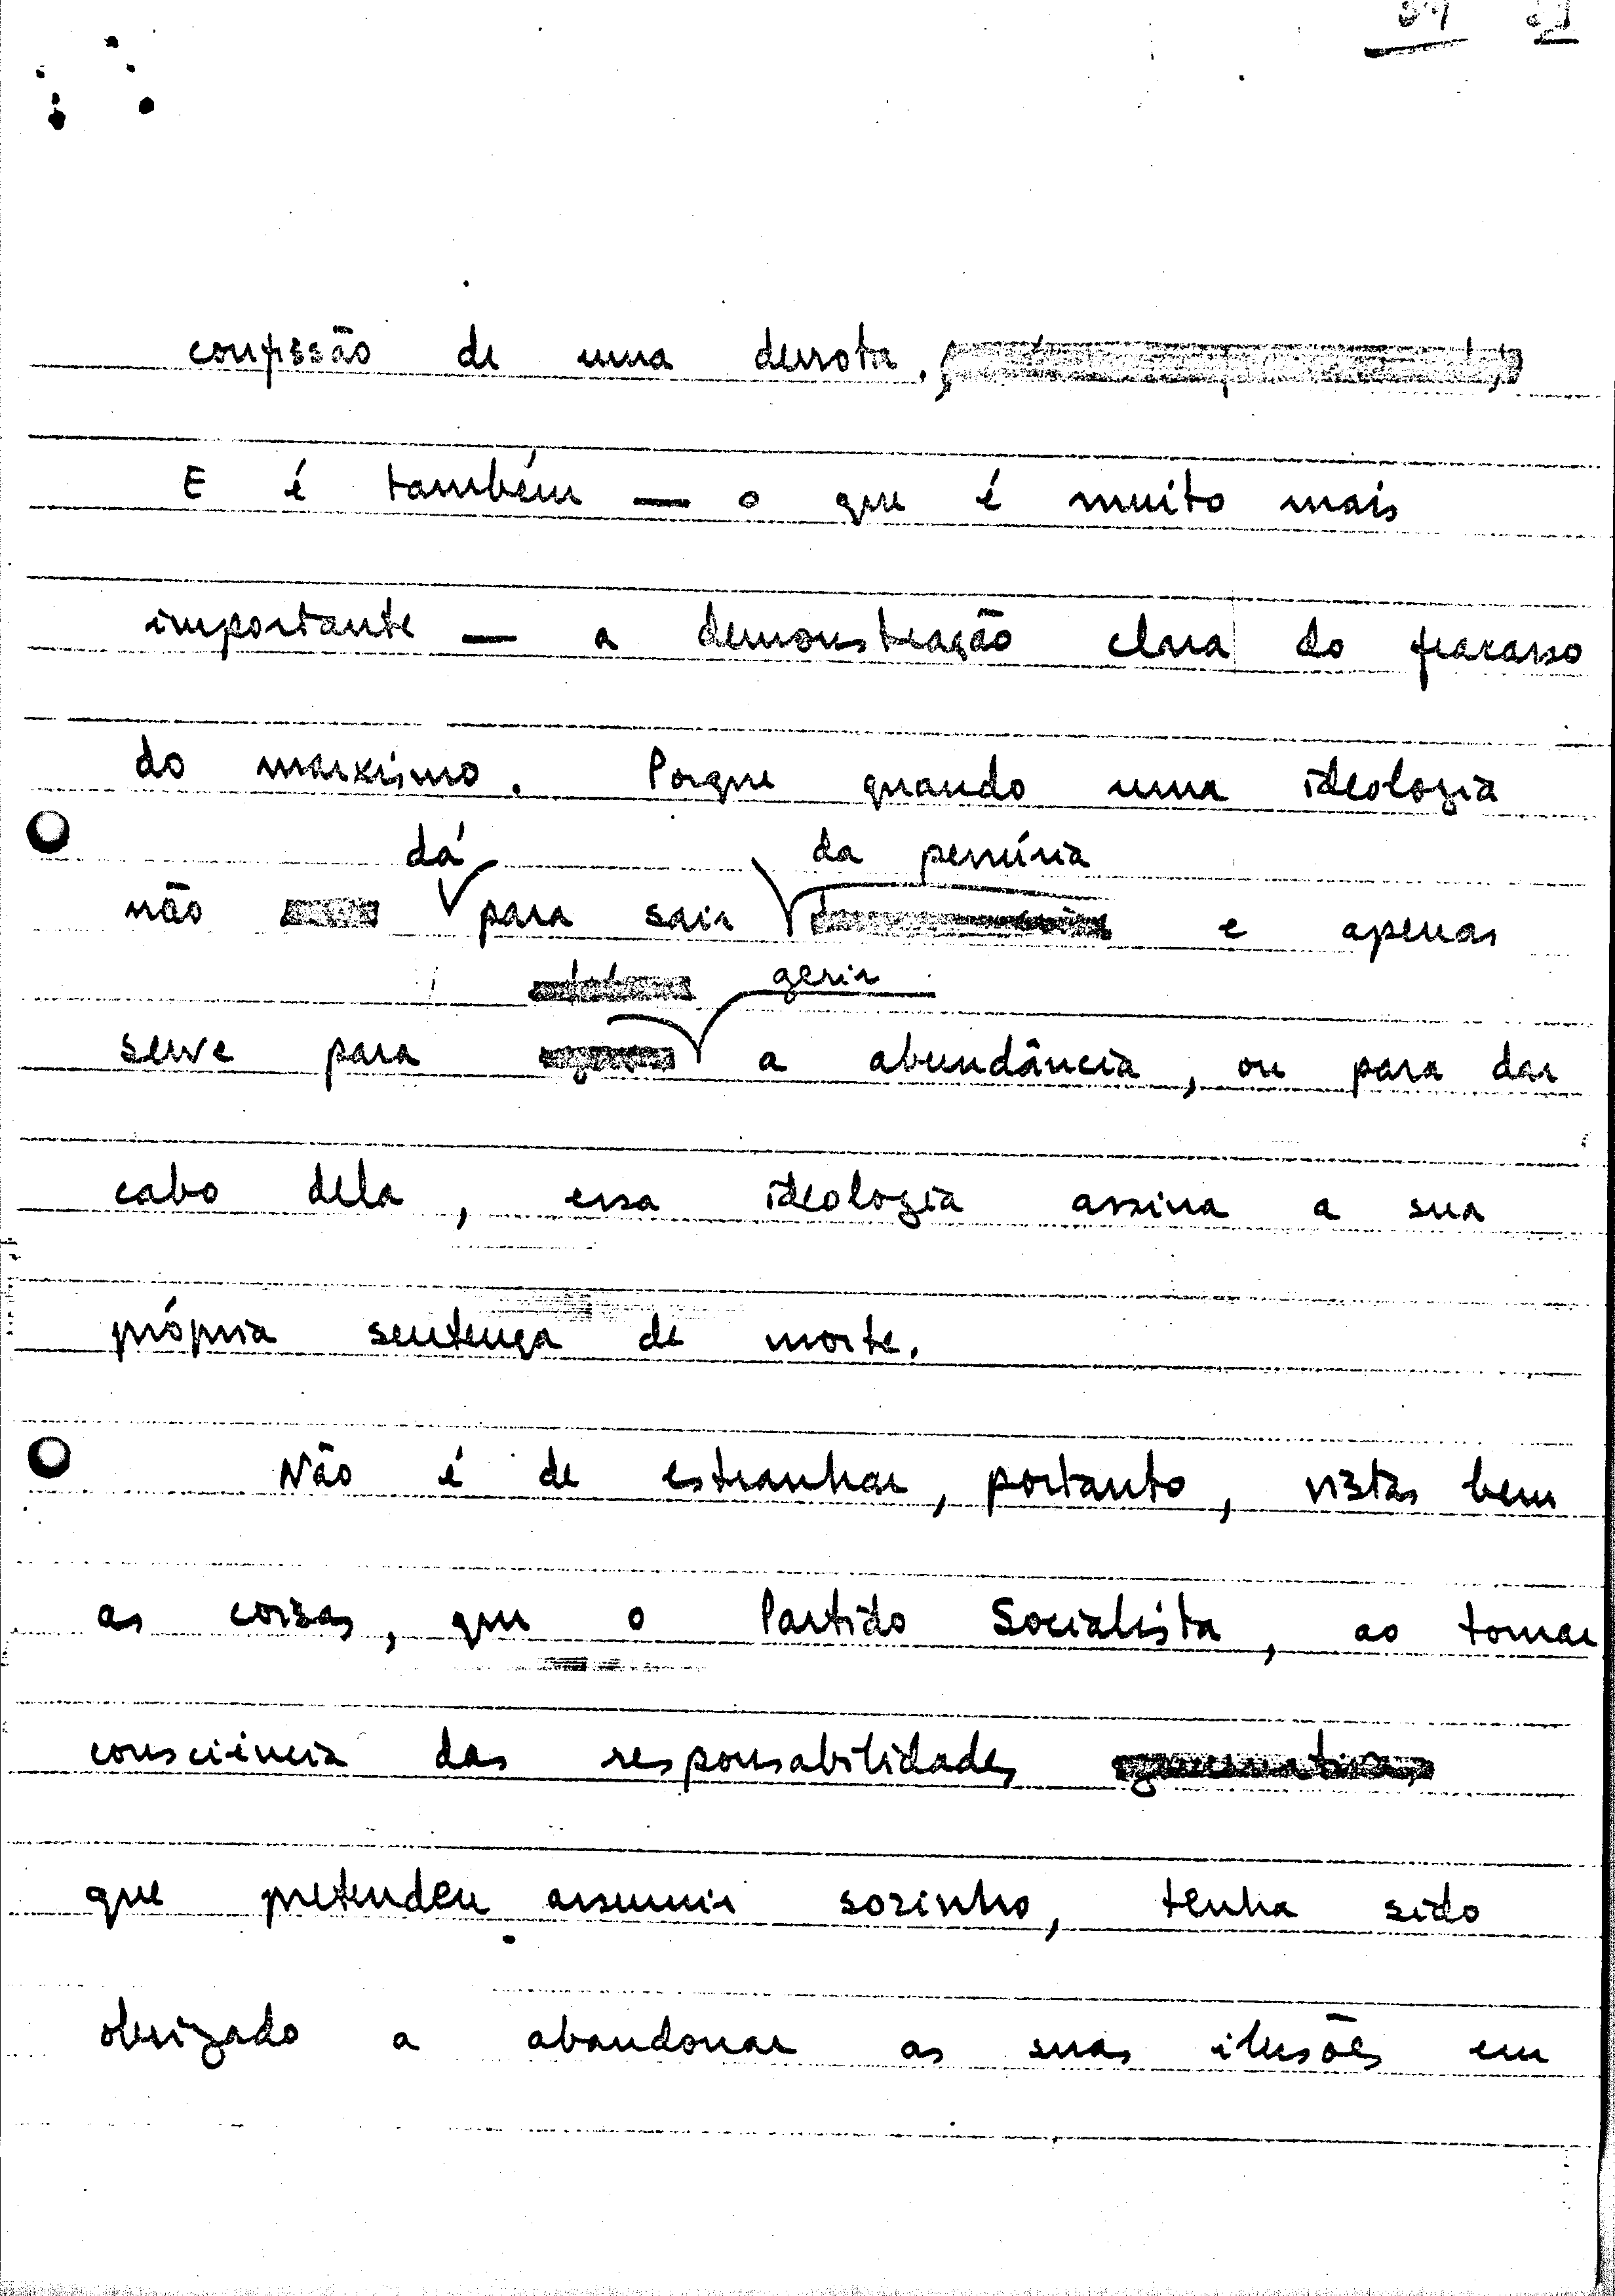 confissão de uma derrota.
E é também — o que é muito mais
importante — a demonstração clara do fracasso
do marxismo. Porque quando uma ideologia
dá da penúria
não para sair e apenas
gerir
serve para a abundância, ou para dar
cabo dela, essa ideologia assina a sua
própria sentença de morte.
Não é de estranhar, portanto, vistas bem
as coisas, que o Partido Socialista, ao tomar
consciência das responsabilidades
que pretendeu assumir sozinho, tenha sido
obrigado a abandonar as suas ilusões em